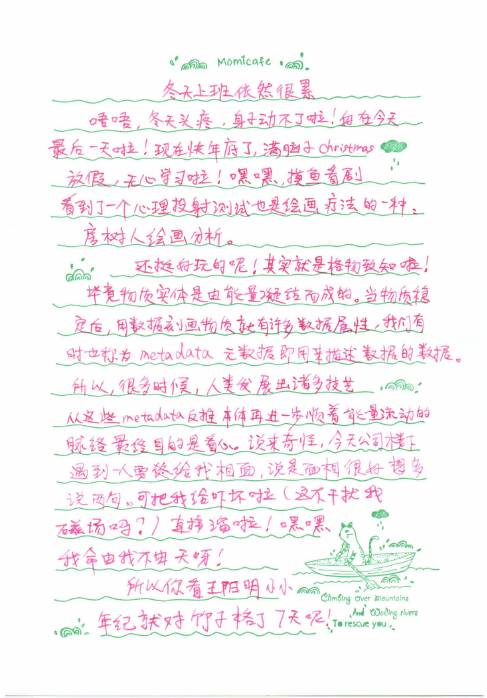 Momicafe
冬天上班依然很累
唔唔,冬天头疼,身子动不了啦!好在今天
最后一天啦!现在快年底了,满脑子christmas
放假,无心学习啦!嘿嘿,摸鱼看剧
看到了一个心理投射测试也是绘画疗法的一种:
房树人绘画分析。
还挺好玩的呢!其实就是格物致知啦!
毕竟物质实体是由能量凝结而成的。当物质稳
定后,用数据刻画物质就有许多数据属性,我们有
时也称为metadata 元数据即用来描述数据的数据。
所以,很多时候,人类发展出诸多技艺
从这些metadata反推本体再进一步顺着能量流动的
脉络最终目的是看心。说来奇怪,今天公司楼下
遇到一人要终给我相面,说是面相很好想多
说两句。可把我给吓坏啦(这不干扰我
磁场吗?)直接溜啦!嘿嘿
我命由我不由天呀!
所以你看王阳明小小
年纪就对竹子格了7天呢!
Climbing over mountains
And Wading rivers
To rescue you